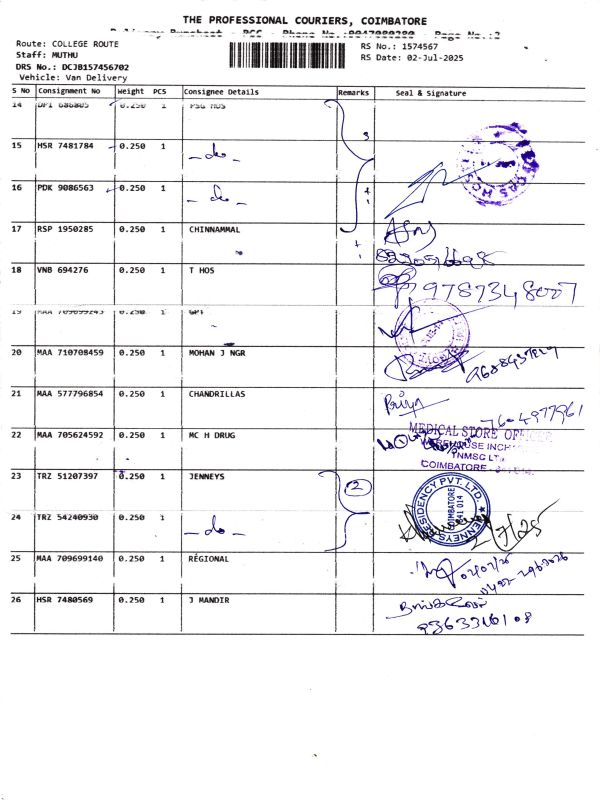 THE PROFESSIONAL COURIERS, COIMBATORE
Delivery Runsheet - PCC - Phone No.:9047080280 - Page No.:2
Route: COLLEGE ROUTE
Staff: MUTHU
DRS No.: DCJB157456702
Vehicle: Van Delivery
RS No.: 1574567
RS Date: 02-Jul-2025
S No Consignment No Weight PCS Consignee Details Remarks Seal & Signature
14 DPI 686805 0.250 1 PSG HOS
3
15 HSR 7481784 0.250 1 - do -
16 PDK 9086563 0.250 1 - do -
17 RSP 1950285 0.250 1 CHINNAMMAL
18 VNB 694276 0.250 1 T HOS
9787348007
19 MAA 709699243 0.250 1 GPT
20 MAA 710708459 0.250 1 MOHAN J NGR
21 MAA 577796854 0.250 1 CHANDRILLAS
Priya
22 MAA 705624592 0.250 1 MC H DRUG
MEDICAL STORE OFFICER
WAREHOUSE INCH
TNMSC LTD
COIMBATORE
23 TRZ 51207397 0.250 1 JENNEYS 2
JENNEYS RESIDENCY PVT. LTD.
COIMBATORE
641 014
24 TRZ 54240930 0.250 1 - do -
2/7/25
25 MAA 709699140 0.250 1 RÉGIONAL
26 HSR 7480569 0.250 1 J MANDIR